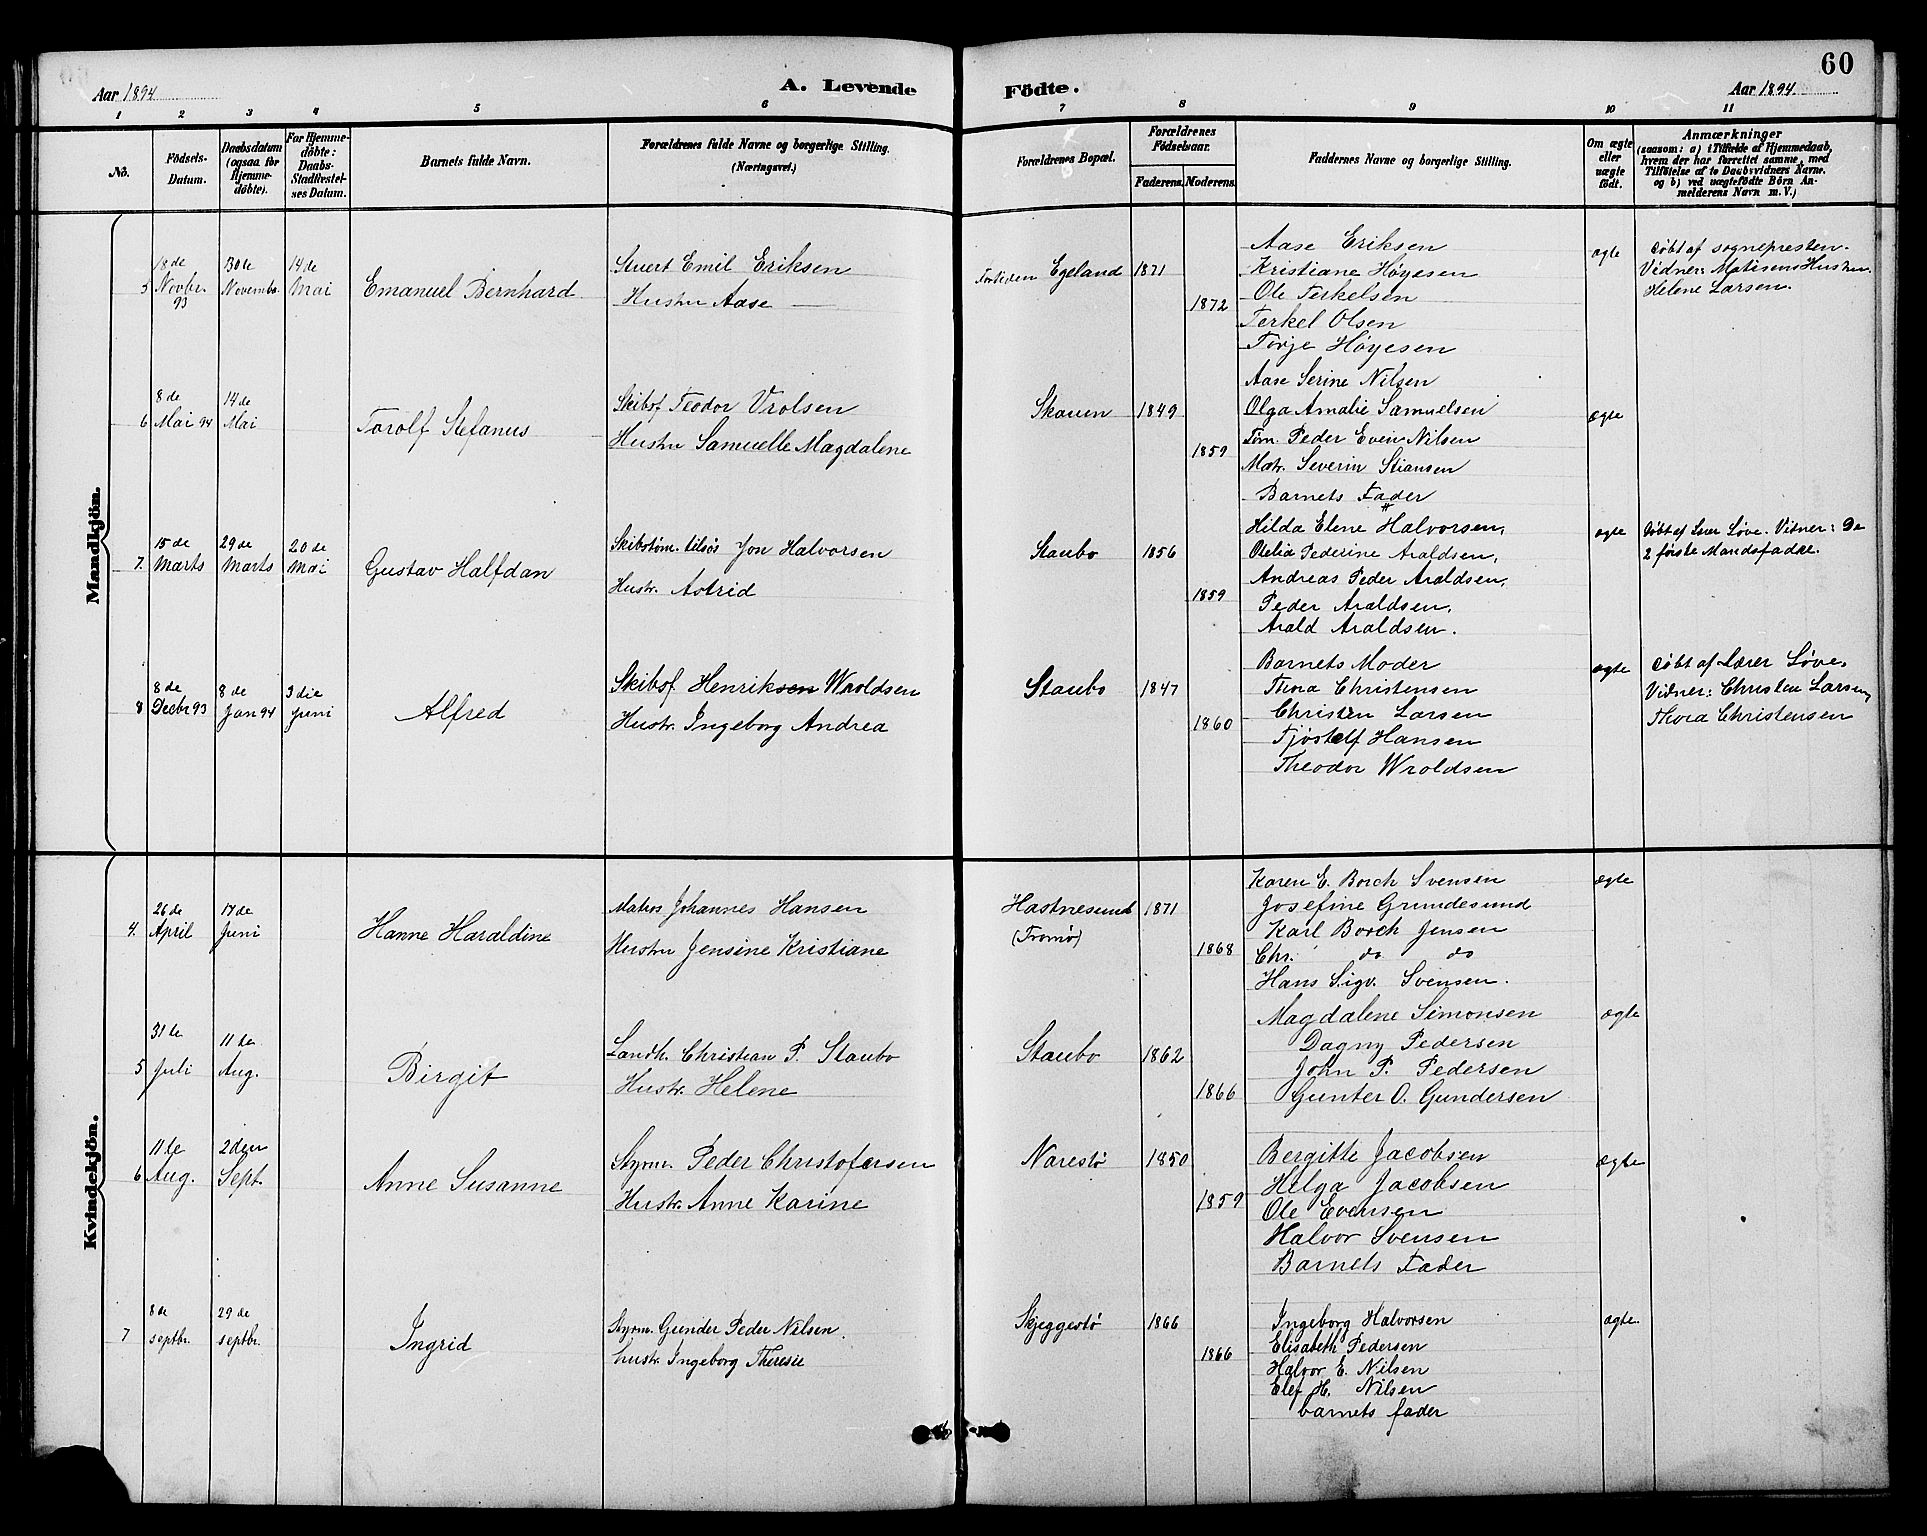 60
Aar 1894
A. Levende
Födte.
Aar 1894
1 2 3 4 5 6 7 8 9 10 11
No.
Födsels-
Datum.
Daabsdatum
(ogsaa for
Hjemme-
döbte).
For Hjemme-
döbte:
Daabs-
Stadfæstel-
ses Datum.
Barnets fulde Navn.
Forældrenes fulde Navne og borgerlige Stilling.
(Næringsvei.)
Forældrenes Bopæl.
Forældrenes
Födselsaar.
Faderens. Moderens.
Faddernes Navne og borgerlige Stilling.
Om ægte
eller
uægte
födt.
Anmærkninger
(saasom: a) i Tilfælde af Hjemmedaab,
hvem der har forrettet samme, med
Tilföielse af to Daabsvidners Navne,
og b) ved uægtefödte Börn An-
melderens Navn m. V.)
Mandkjön.
5
18de
Novbr.
93
30te
Novembr.
14de
Mai
Emanuel Bernhard
Stuert Emil Eriksen
Hustru Aase —
Fortiden Egeland
1871
1872
Aase Eriksen
Kristiane Høyesen
Ole Terkelsen
Terkel Olsen
Torje Høyesen
ægte
Døbt af sognepresten.
Vidner: Hustru
Helene Larsen.
6
8de
Mai 94
14de
Mai
Torolf Stefanus
Skibsf. Teodor Vrolsen
Hustru Samuelle Magdalene
Skaven
1849
1859
Aase Serine Nilsen
Olga Amalie Samuelsen
Tøm. Peder Even Nilsen
Matr. Severin Stiansen
Barnets Fader
ægte
7.
15de
Marts
29de
Marts
20de
Mai
Gustav Halfdan
Skibstøm. tilsøs Jon Halvorsen
Hustr. Astrid
Staubo
1856
1859
Hilda Elene Halvorsen,
Otelia Pederine Araldsen,
Andreas Peder Araldsen,
Peder Araldsen,
Arald Araldsen.
ægte
Døbt af Løve. Vidner: De
2 første Mandsfadre.
8
8de
Decbr 93
8de
Jan 94
3die
Juni
Alfred
Skibsf. Henriksen Wroldsen
Hustr. Ingeborg Andrea
Staubo
1847
1860
Barnets Moder
Thora Christensen
Christen Larsen
Tjøstolf Hansen
Theodor Wroldsen
ægte
Døbt af Lærer Løve.
Vidner: Christen Larsen,
Thora Christensen
Kvindekjön.
4.
26de
April
17de
Juni
Hanne Haraldine
Matros Johannes Hansen
Hustru Jensine Kristiane
Hastnesund
(Tromø)
1871
1868
Karen E. Borch Svensen
Josefine Grundesund
Karl Borch Jensen
Chr. do do
Hans Sigv. Svensen.
ægte
5
31te
Juli
11te
Aug.
Birgit
Landh. Christian P. Staubo
Hustr. Helene
Staubo
1862
1866
Magdalene Simonsen
Dagny Pedersen
John P. Pedersen
Gunter O. Gundersen
ægte
6
11te
Aug.
2den
Sept.
Anne Susanne
Styrm. Peder Christofersen
Hustr. Anne Karine
Narestø
1850
1859
Bergitte Jacobsen
Helga Jacobsen
Ole Evensen
Halvor Svensen
Barnets Fader
ægte
7
8de
septbr.
29de
septbr.
Ingrid
Styrm. Gunder Peder Nilsen.
hustr. Ingeborg Theresie
Skjeggestø
1866
1866
Ingeborg Halvorsen
Elisabeth Pedersen
Halvor E. Nilsen
Elef H. Nilsen
barnets fader
ægte.